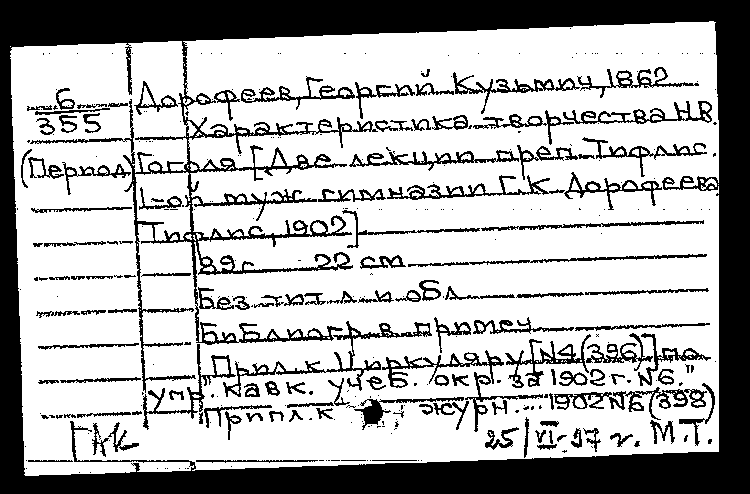 6
355
(Период)
Дорофеев, Георгий Кузьмич, 1862
Характеристика творчества Н.В.
Гоголя [Две лекции преп. Тифлис.
1-ой муж. гимназии Г.К. Дорофеева
Тифлис, 1902]
89 с. 22 см
Без тит. л. и обл.
Библиогр. в примеч.
Прил. к Циркуляру [№4 (396)] по
упр. "кавк. учеб. окр. за 1902 г. №6."
Прил. к журн.... 1902 №6 (398)
ГАК
25/VI-97 г. М.Т.